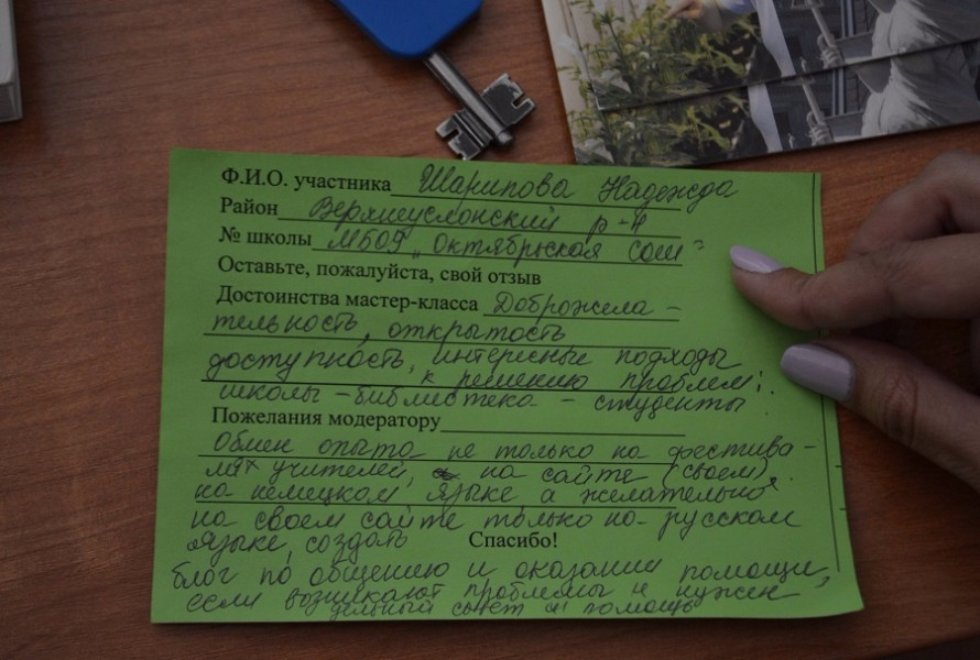 Ф.И.О. участника Шарипова Надежда
Район Верхнеуслонский р-н
№ школы МБОУ "Октябрьская сош"
Оставьте, пожалуйста, свой отзыв
Достоинства мастер-класса Доброжела-
тельность, открытость
доступность, интересные подходы
к решению проблем:
школы-библиотека-студенты!
Пожелания модератору
Обмен опыта не только на фестива-
лях учителей, на сайте (своем),
на немецком языке а желательно
на своем сайте только на русском
языке, создать Спасибо!
блог по общению и оказании помощи,
если возникают проблемы и нужен
дельный совет и помощь